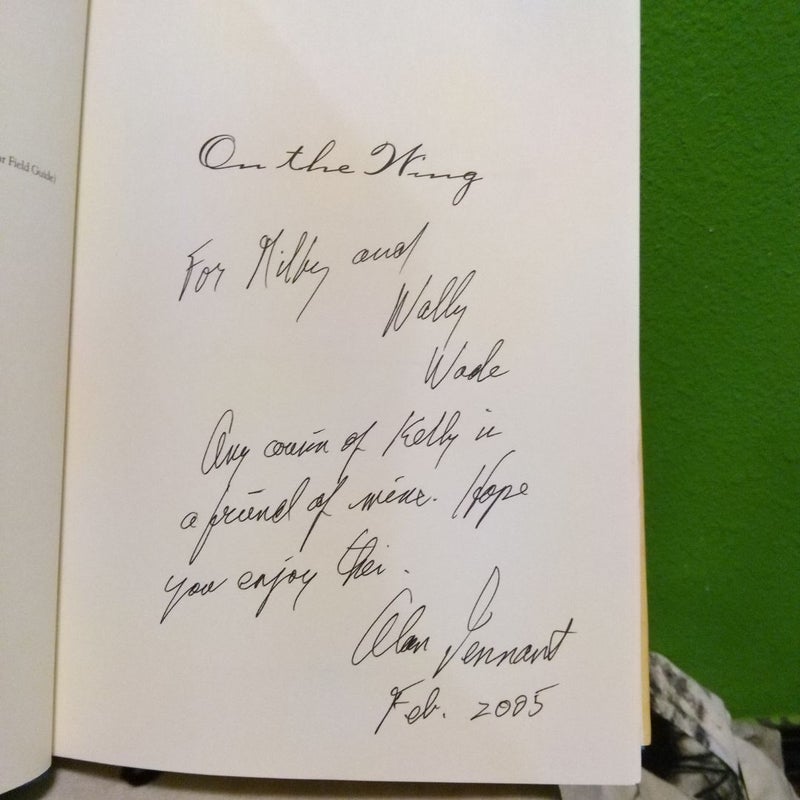 r Field Guide)
On the Wing
For Milby and
Wally
Wade
Any cousin of Kelly is
a friend of mine. Hope
you enjoy this.
Alan Tennant
Feb. 2005